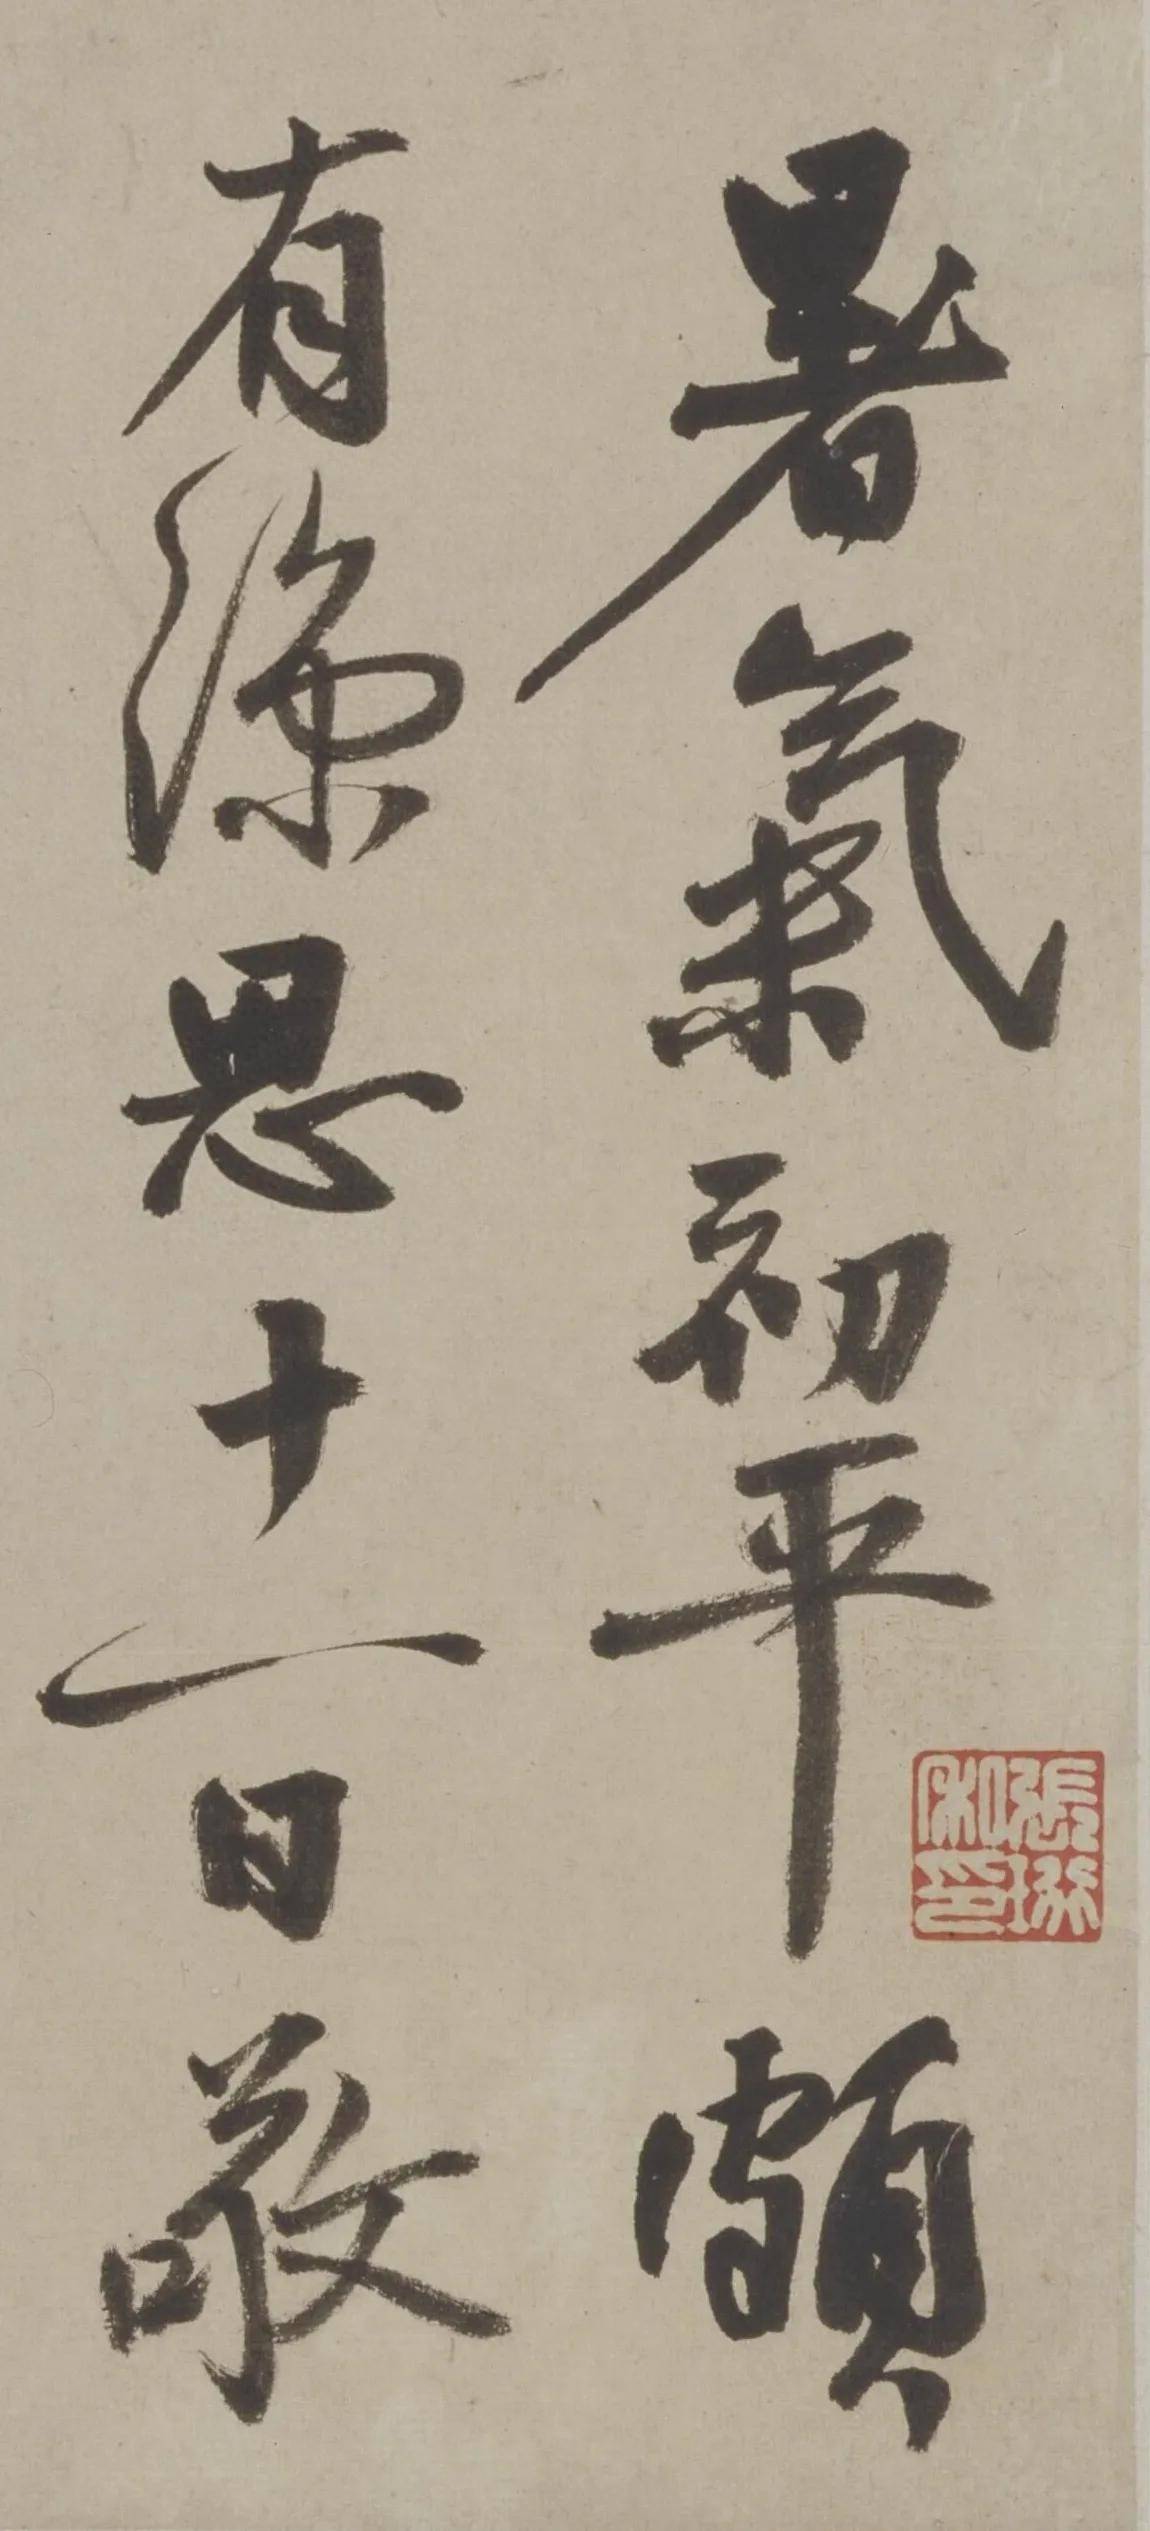 暑氣初平頗
有涼思十一日敬
張珩私印